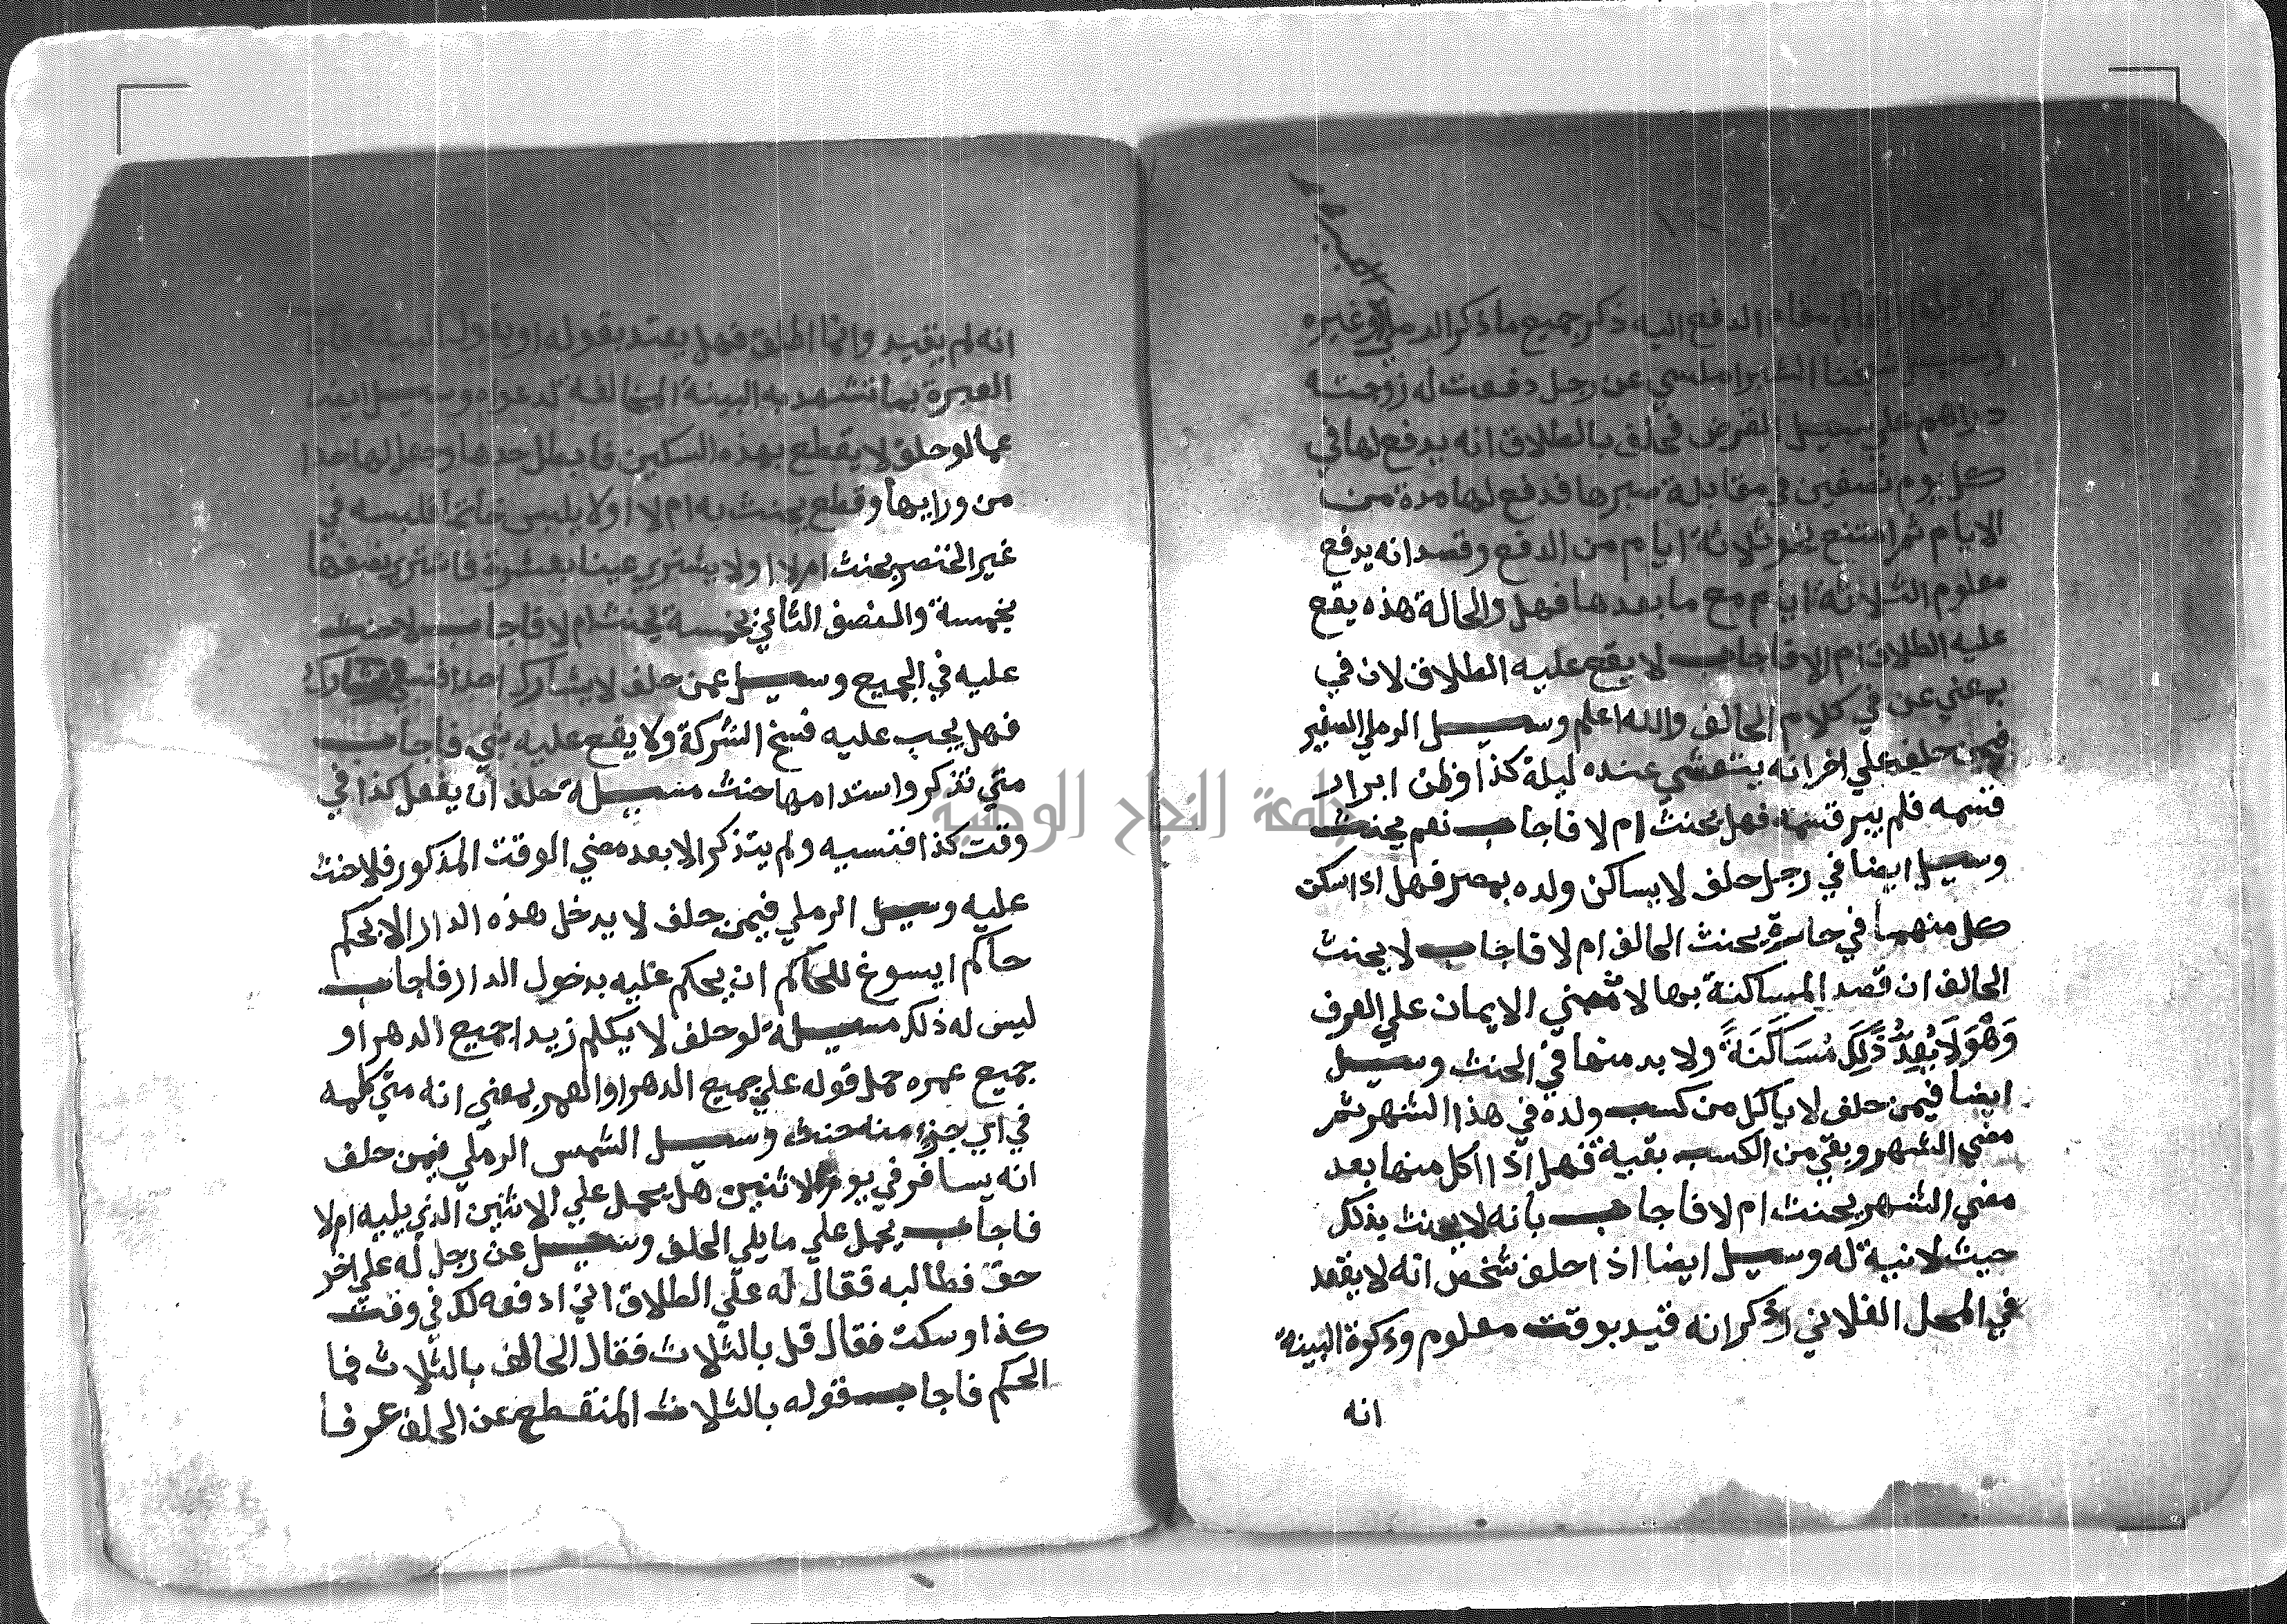 مقام الدفع اليه ذكر جميع ما ذكر الرملي وغيره
وسيل شيخنا الشبراملسي عن رجل دفعت له زوجته
دراهم علي سبيل القرض فحلف بالطلاق انه يدفع لها في
كل يوم نصفين في مقابلة صبرها فدفع لها مدة من
الايام ثم امتنع نحو ثلاثة ايام من الدفع وقصد انه يدفع
معلوم الثلاثة ايام مع ما بعدها فهل والحالة هذه يقع
عليه الطلاق ام لا فاجاب لا يقع عليه الطلاق لان في
بمعني عن في كلام الحالف والله اعلم وسيل الرملي الصغير
فيمن حلف علي اخر انه يتعشي عنده ليلة كذا وظن ابرار
قسمه فلم يبر قسمه فهل يحنث ام لا فاجاب نعم يحنث
وسيل ايضا في رجل حلف لا يساكن ولده بمصر فهل اذا سكن
كل منهما في حارة يحنث الحالف ام لا فاجاب لا يحنث
الحالف ان قصد المساكنة بها لا مبني الايمان علي العرف
وَهْوَ لَا يُعِدُّ ذَلِكَ مُسَاكَنَةً ولا بد منها في الحنث وسيل
ايضا فيمن حلف لا ياكل من كسب ولده في هذا الشهر ثم
مضي الشهر وبقي من الكسب بقية فهل اذا اكل منها بعد
مضي الشهر يحنث ام لا فاجاب بانه لا يحنث بذلك
حيث لا نية له وسيل ايضا اذا حلف شخص انه لا يقعد
في المحل الفلاني وذكر انه قيد بوقت معلوم وذكرة البينة
انه
انه لم يقيد وانما اطلق فهل يعتد بقوله او بقول البينة
العبرة بما تشهد به البينة المخالفة لدعواه وسيل ايضا
عما لو حلف لا يقطع بهذه السكين فابطل حدها وجعل لها حدا
من ورايها وقطع يحنث به ام لا او لا يلبس خاتما فلبسه في
غير الخنصر يحنث ام لا او لا يشتري عينا بعشرة فاشتري نصفها
بخمسة والنصف الثاني بخمسة يحنث ام لا فاجاب لا حنث
عليه في الجميع وسيل عمن حلف لا يشارك احدا فنسي فشارك
فهل يجب عليه فسخ الشركة ولا يقع عليه شي فاجاب
متي تذكر واستدامها حنث مسيلة حلف ان يفعل كذا في
وقت كذا فنسيه ولم يتذكر الا بعد مضي الوقت المذكور فلا حنث
عليه وسيل الرملي فيمن حلف لا يدخل هذه الدار الا بحكم
حاكم ايسوغ للحاكم ان يحكم عليه بدخول الدار فاجاب
ليس له ذلك مسيلة لو حلف لا يكلم زيدا جميع الدهر او
جميع عمره حمل قوله علي جميع الدهر او العمر بمعني انه متي كلمه
في اي جزء منه حنث وسيل الشمس الرملي فيمن حلف
انه يسافر في يوم الاثنين هل يحمل علي الاثنين الذي يليه ام لا
فاجاب يحمل علي ما يلي الحلف وسيل عن رجل له علي اخر
حق فطالبه فقال له علي الطلاق اني ادفعه لك في وقت
كذا وسكت فقال قل بالثلاث فقال الحالف بالثلاث فما
الحكم فاجاب قوله بالثلاث المنقطع عن الحلف عرفا
جامعة النجاح الوطنية